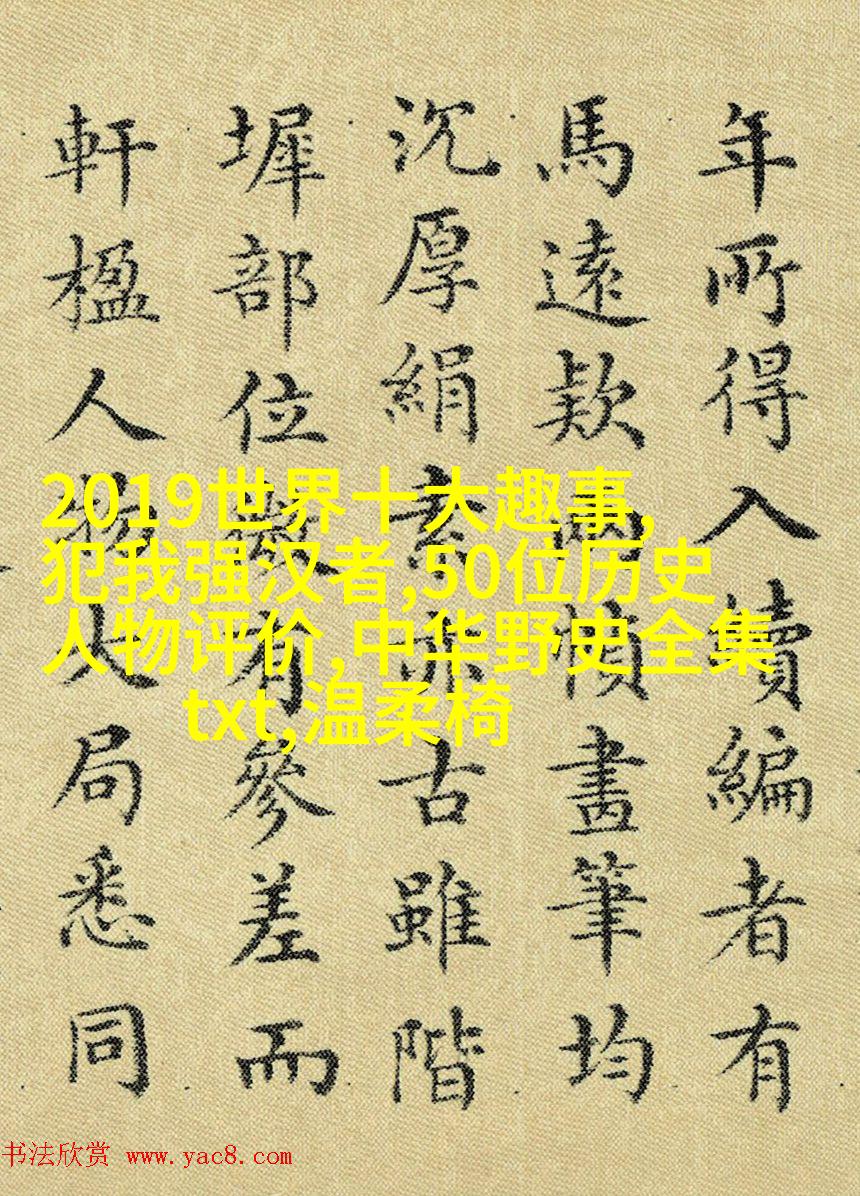 年所得入續編者有
馬遠款兩幀畫筆均
沉厚絹素亦古雖階
墀部位微有參差而
軒楹人物大局悉同
2019世界十大趣事,
犯我强汉者,50位历史
人物评价,中华野史全集
txt,温柔椅
书法欣赏 www.yac8.com